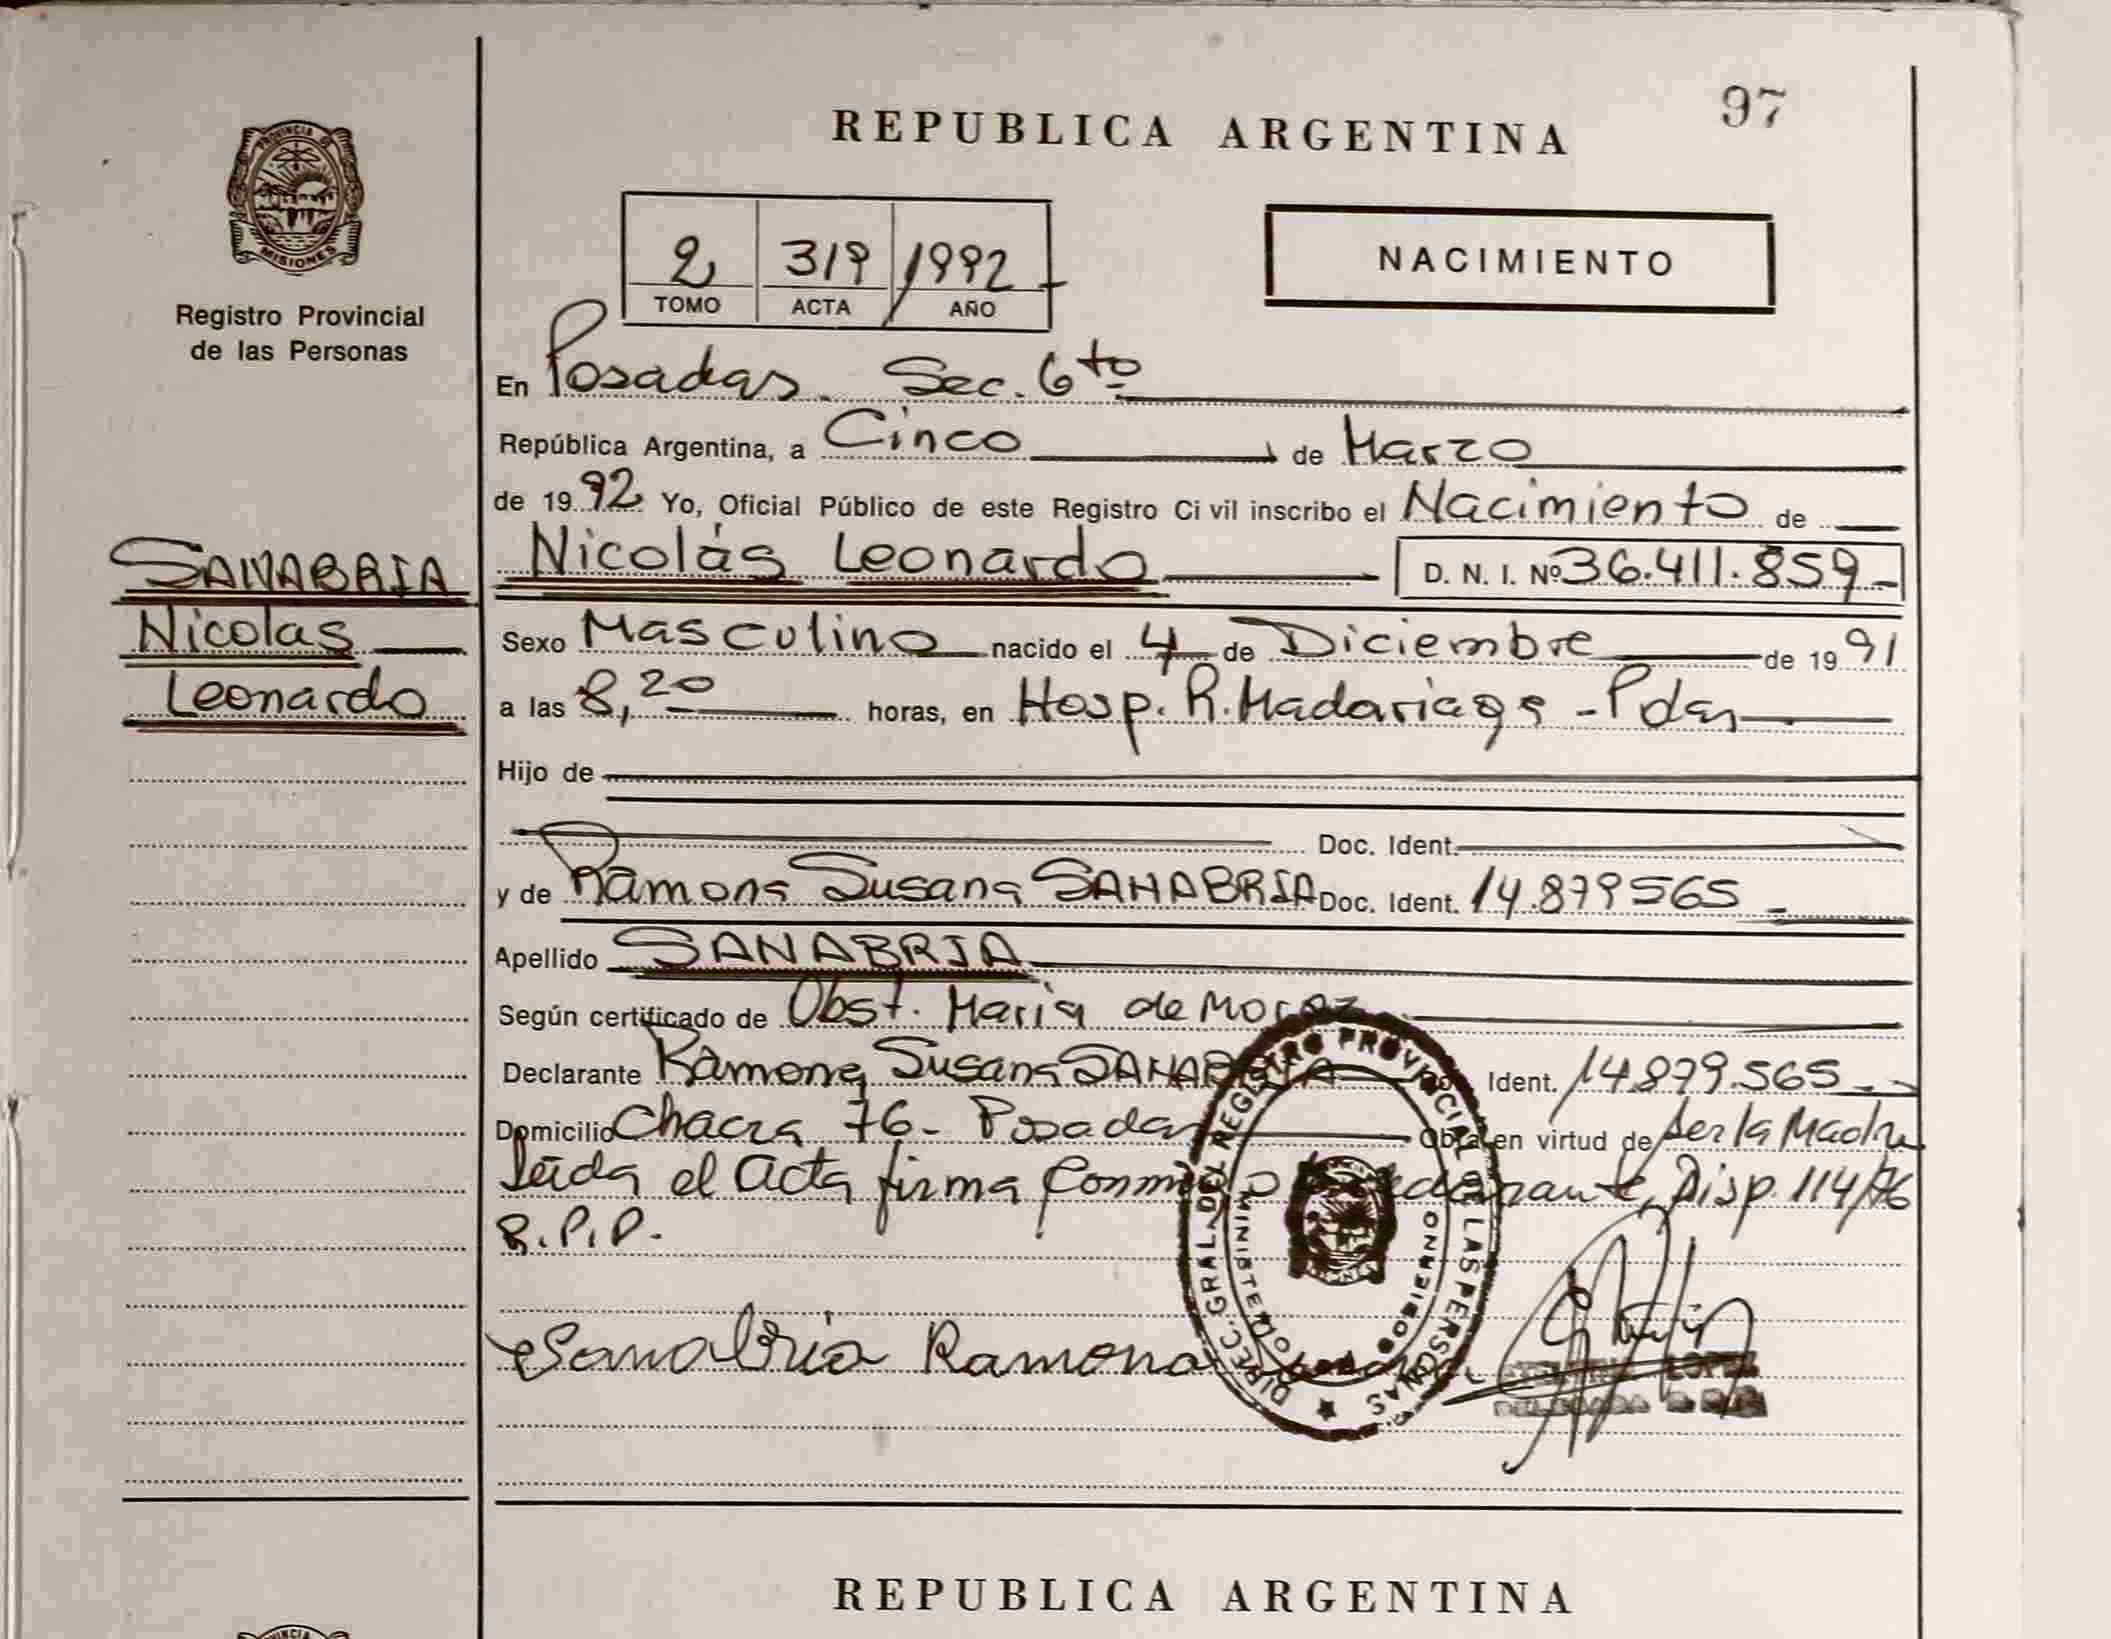 97
REPUBLICA ARGENTINA
PROVINCIA DE MISIONES
Registro Provincial
de las Personas
2 319 1992
TOMO ACTA AÑO
NACIMIENTO
En Posadas Sec. 6to
República Argentina, a Cinco de Marzo
de 1992 Yo, Oficial Público de este Registro Civil inscribo el Nacimiento de
SANABRIA
Nicolas
Leonardo
Nicolás Leonardo D. N. I. Nº 36.411.859
Sexo Masculino nacido el 4 de Diciembre de 1991
a las 8,20 horas, en Hosp. R. Madariaga - Pdas
Hijo de
Doc. Ident.
y de Ramona Susana SANABRIA Doc. Ident. 14.879565
Apellido SANABRIA
Según certificado de Obst. Maria de
Declarante Ramona Susana SANABRIA Ident. 14.879.565
Domicilio Chacra 76 - Posadas Obra en virtud de ser la Madre
Leida el Acta firma conmigo la declarante, Disp. 114/76
R.P.P.
Sanabria Ramona
DIREC. GRAL. DEL REGISTRO PROVINCIAL DE LAS PERSONAS
MINISTERIO DE GOBIERNO
LOPEZ
REPUBLICA ARGENTINA